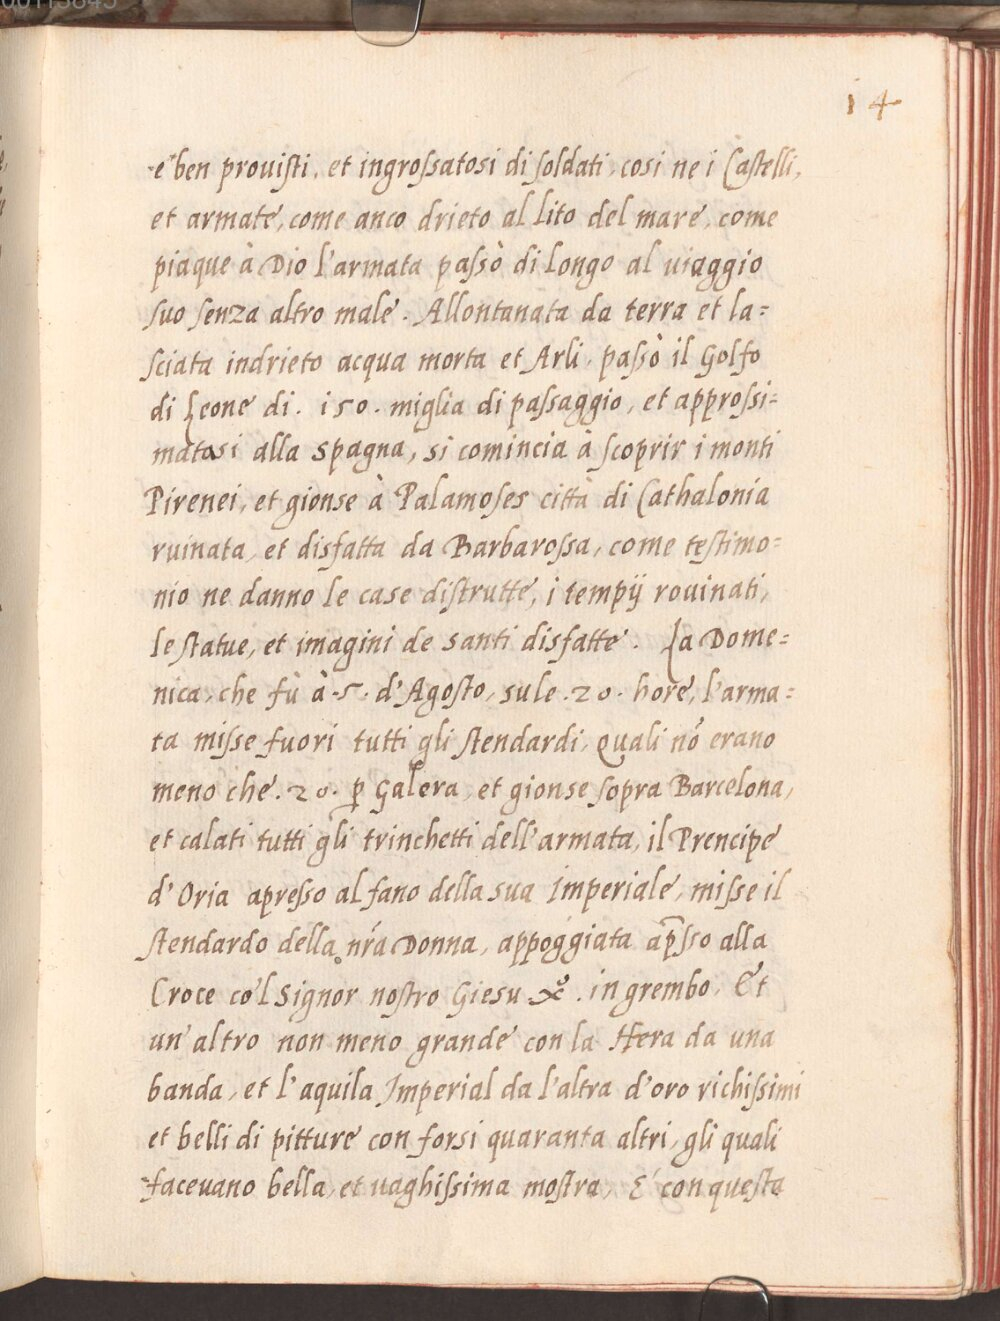 14
e ben prouisti, et ingrossatosi di soldati, cosi ne i Castelli,
et armate, come anco drieto al Lito del mare, come
piaque à Dio l'armata passò di longo al uiaggio
suo senza altro male. Allontanata da terra et la=
sciata indrieto acqua morta et Arli, passò il Golfo
di Leone di. 150. miglia di passaggio, et approssi=
matosi alla Spagna, si comincia à scoprir i monti
Pirenei, et gionse à Palamoses città di Cathalonia
ruinata, et disfatta da Barbarossa, come testimo=
nio ne danno le case distrutte, i tempij rouinati,
le statue, et imagini de santi disfatte. La Dome=
nica, che fù à .5. d'Agosto, sule .20. hore, l'arma=
ta misse fuori tutti gli stendardi, quali nó erano
meno che .20. p Galera, et gionse sopra Barcelona,
et calati tutti gli trinchetti dell'armata, il Prencipe
d'Oria apresso al fano della sua Imperiale, misse il
stendardo della nra Donna, appoggiata apsso alla
Croce co'l Signor nostro Giesu Xº. in grembo. Et
un'altro non meno grande con la Hera da una
banda, et l'aquila Imperial da l'altra d'oro richissimi
et belli di pitture con forsi quaranta altri, gli quali
faceuano bella, et uaghissima mostra, E con questa